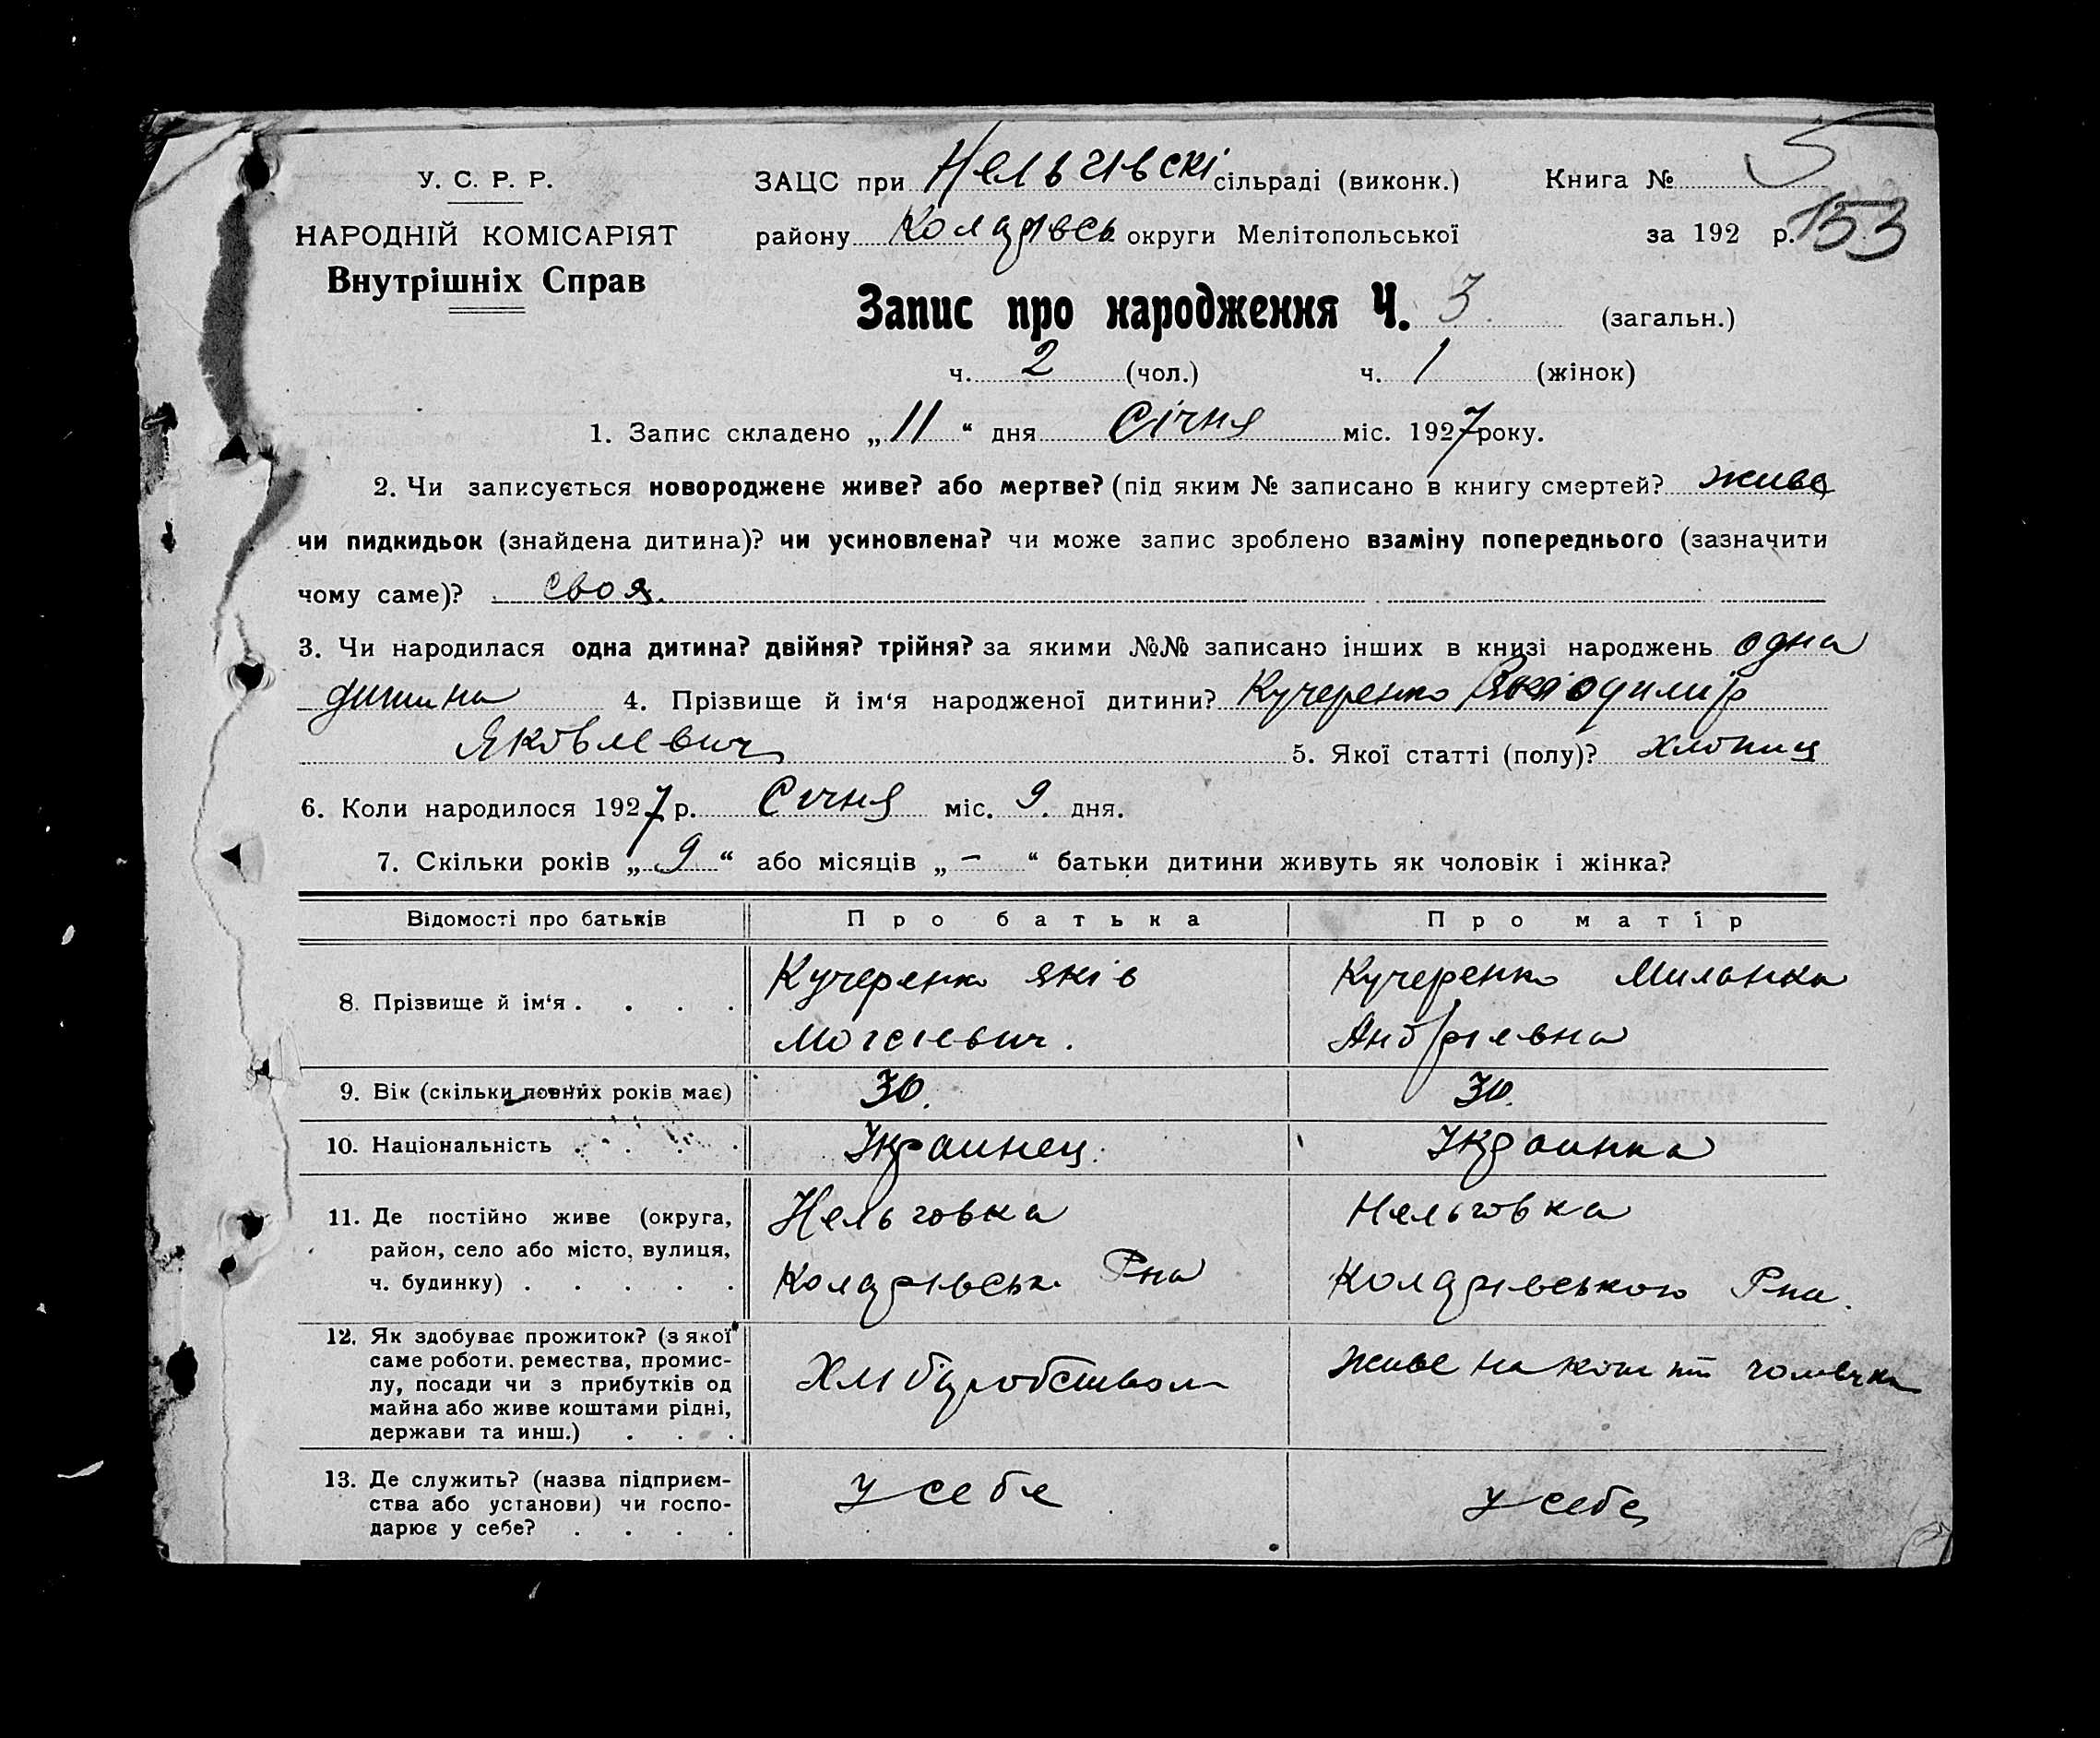 У. С. Р. Р.
НАРОДНІЙ КОМІСАРІЯТ
Внутрішніх Справ
ЗАЦС при Нельгівскі сільраді (виконк.) Книга № 5
району Коларівсь округи Мелітопольської за 192 р. 153
Запис про народження Ч. 3 (загальн.)
ч. 2 (чол.) ч. 1 (жінок)
1. Запис складено „11“ дня Січня міс. 1927 року.
2. Чи записується новороджене живе? або мертве? (під яким № записано в книгу смертей? живе
чи пидкидьок (знайдена дитина)? чи усиновлена? чи може запис зроблено взаміну попереднього (зазначити
чому саме)? своя.
3. Чи народилася одна дитина? двійня? трійня? за якими №№ записано інших в книзі народжень одна
дитина 4. Прізвище й ім‘я народженої дитини? Кучеренко Володимір
Яковлевич 5. Якої статті (полу)? хлопиц
6. Коли народилося 1927 р. Січня міс. 9. дня.
7. Скільки років „9“ або місяців „–“ батьки дитини живуть як чоловік і жінка?
Відомості про батьків Про батька Про матір
8. Прізвище й ім‘я . . . . Кучеренко Яків Кучеренко Миланка
Мосієвич. Андрієвна
9. Вік (скільки повних років має) 30. 30.
10. Національність . . . . Украинец. Украинка
11. Де постійно живе (округа, Нельговка Нельговка
район, село або місто, вулиця,
ч. будинку) . . . . . Коларівськ. Рна Коларівського Рна.
12. Як здобуває прожиток? (з якої
саме роботи, ремества, промис-
лу, посади чи з прибутків од Хліборобством Живе на кошти чоловіка
майна або живе коштами рідні,
держави та инш.) . . .
13. Де служить? (назва підприєм- у себе у себе
ства або установи) чи госпо-
дарює у себе? . . . .